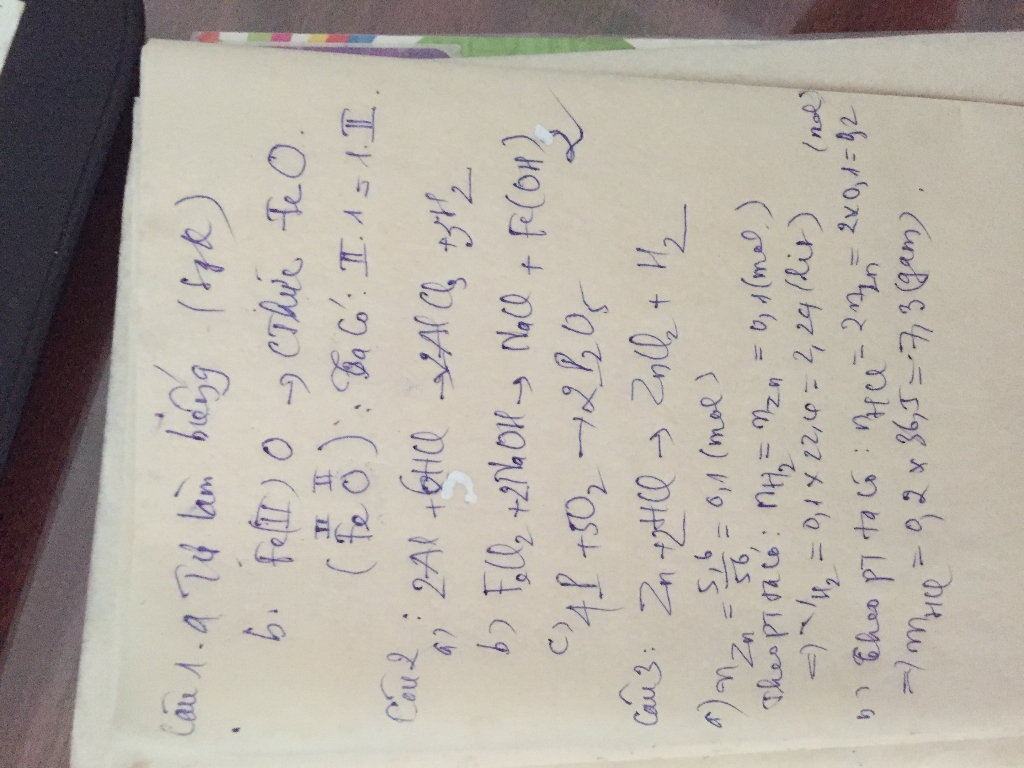 Câu 1. a Tự làm biếng (Sgk)
b. Fe(II) O → CThức FeO.
II II
(Fe O) : Ta Có: II.1 = 1.II.
Câu 2
a) : 2Al + 6HCl → 2AlCl3 + 3H2
b) FeCl2 + 2NaOH → NaCl + Fe(OH)2
c) 4P + 5O2 → 2P2O5
Câu 3: Zn + 2HCl → ZnCl2 + H2
a) nZn = 5,6/56 = 0,1 (mol)
Theo PT ta có: nH2 = nZn = 0,1 (mol)
=> VH2 = 0,1 x 22,4 = 2,24 (lít)
b) Theo PT ta có : nHCl = 2nZn = 2x0,1 = 0,2 (mol)
=> mHCl = 0,2 x 36,5 = 7,3 (gam).